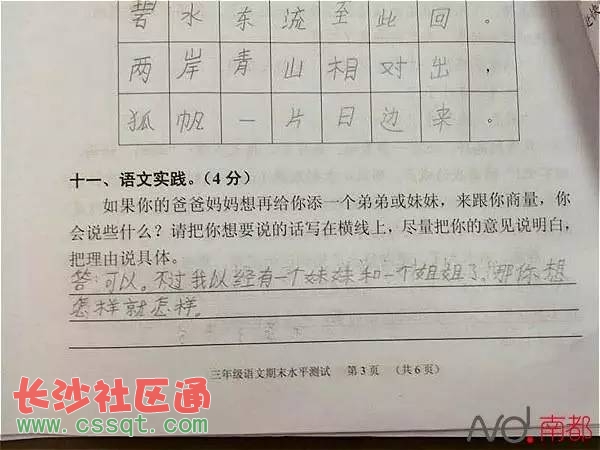 碧水东流至此回。
两岸青山相对出，
狐帆一片日边来。
十一、语文实践。（4分）
如果你的爸爸妈妈想再给你添一个弟弟或妹妹，来跟你商量，你
会说些什么？请把你想要说的话写在横线上，尽量把你的意见说明白，
把理由说具体。
答：可以。不过我以经有一个妹妹和一个姐姐了，那你想
怎样就怎样。
三年级语文期末水平测试 第3页 （共6页）
长沙社区通
www.cssqt.com
Nd.南都